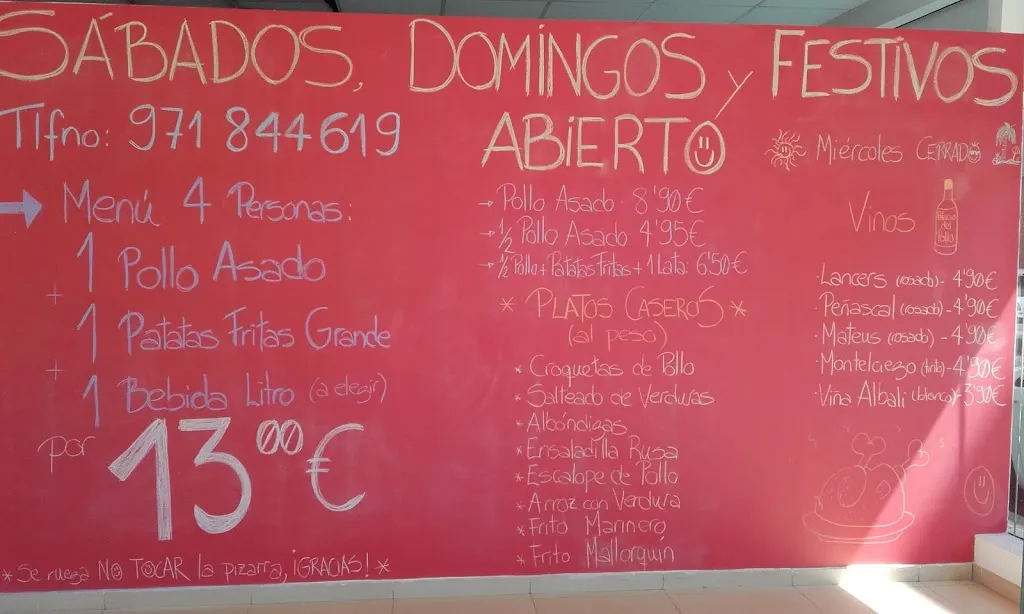 SÁBADOS, DOMINGOS y FESTIVOS
ABIERTO
Tlfno: 971 844619
→ Menú 4 Personas:
1 Pollo Asado
+
1 Patatas Fritas Grande
+
1 Bebida Litro (a elegir)
por 13'00 €
* Se ruega NO TOCAR la pizarra, ¡GRACIAS! *
→ Pollo Asado - 8'90€
→ 1/2 Pollo Asado 4'95€
→ 1/2 Pollo + Patatas Fritas + 1 Lata: 6'50€
* PLATOS CASEROS *
(al peso)
* Croquetas de Pollo
* Salteado de Verduras
* Albóndigas
* Ensaladilla Rusa
* Escalope de Pollo
* Arroz con Verdura
* Frito Marinero
* Frito Mallorquín
Miércoles CERRADO
Vinos
Palacio del Pollo
· Lancers (rosado) - 4'90€
· Peñascal (rosado) - 4'90€
· Mateus (rosado) - 4'90€
· Monteloiezo (tinto) - 4'90€
· Viña Albali (blanco) - 3'90€